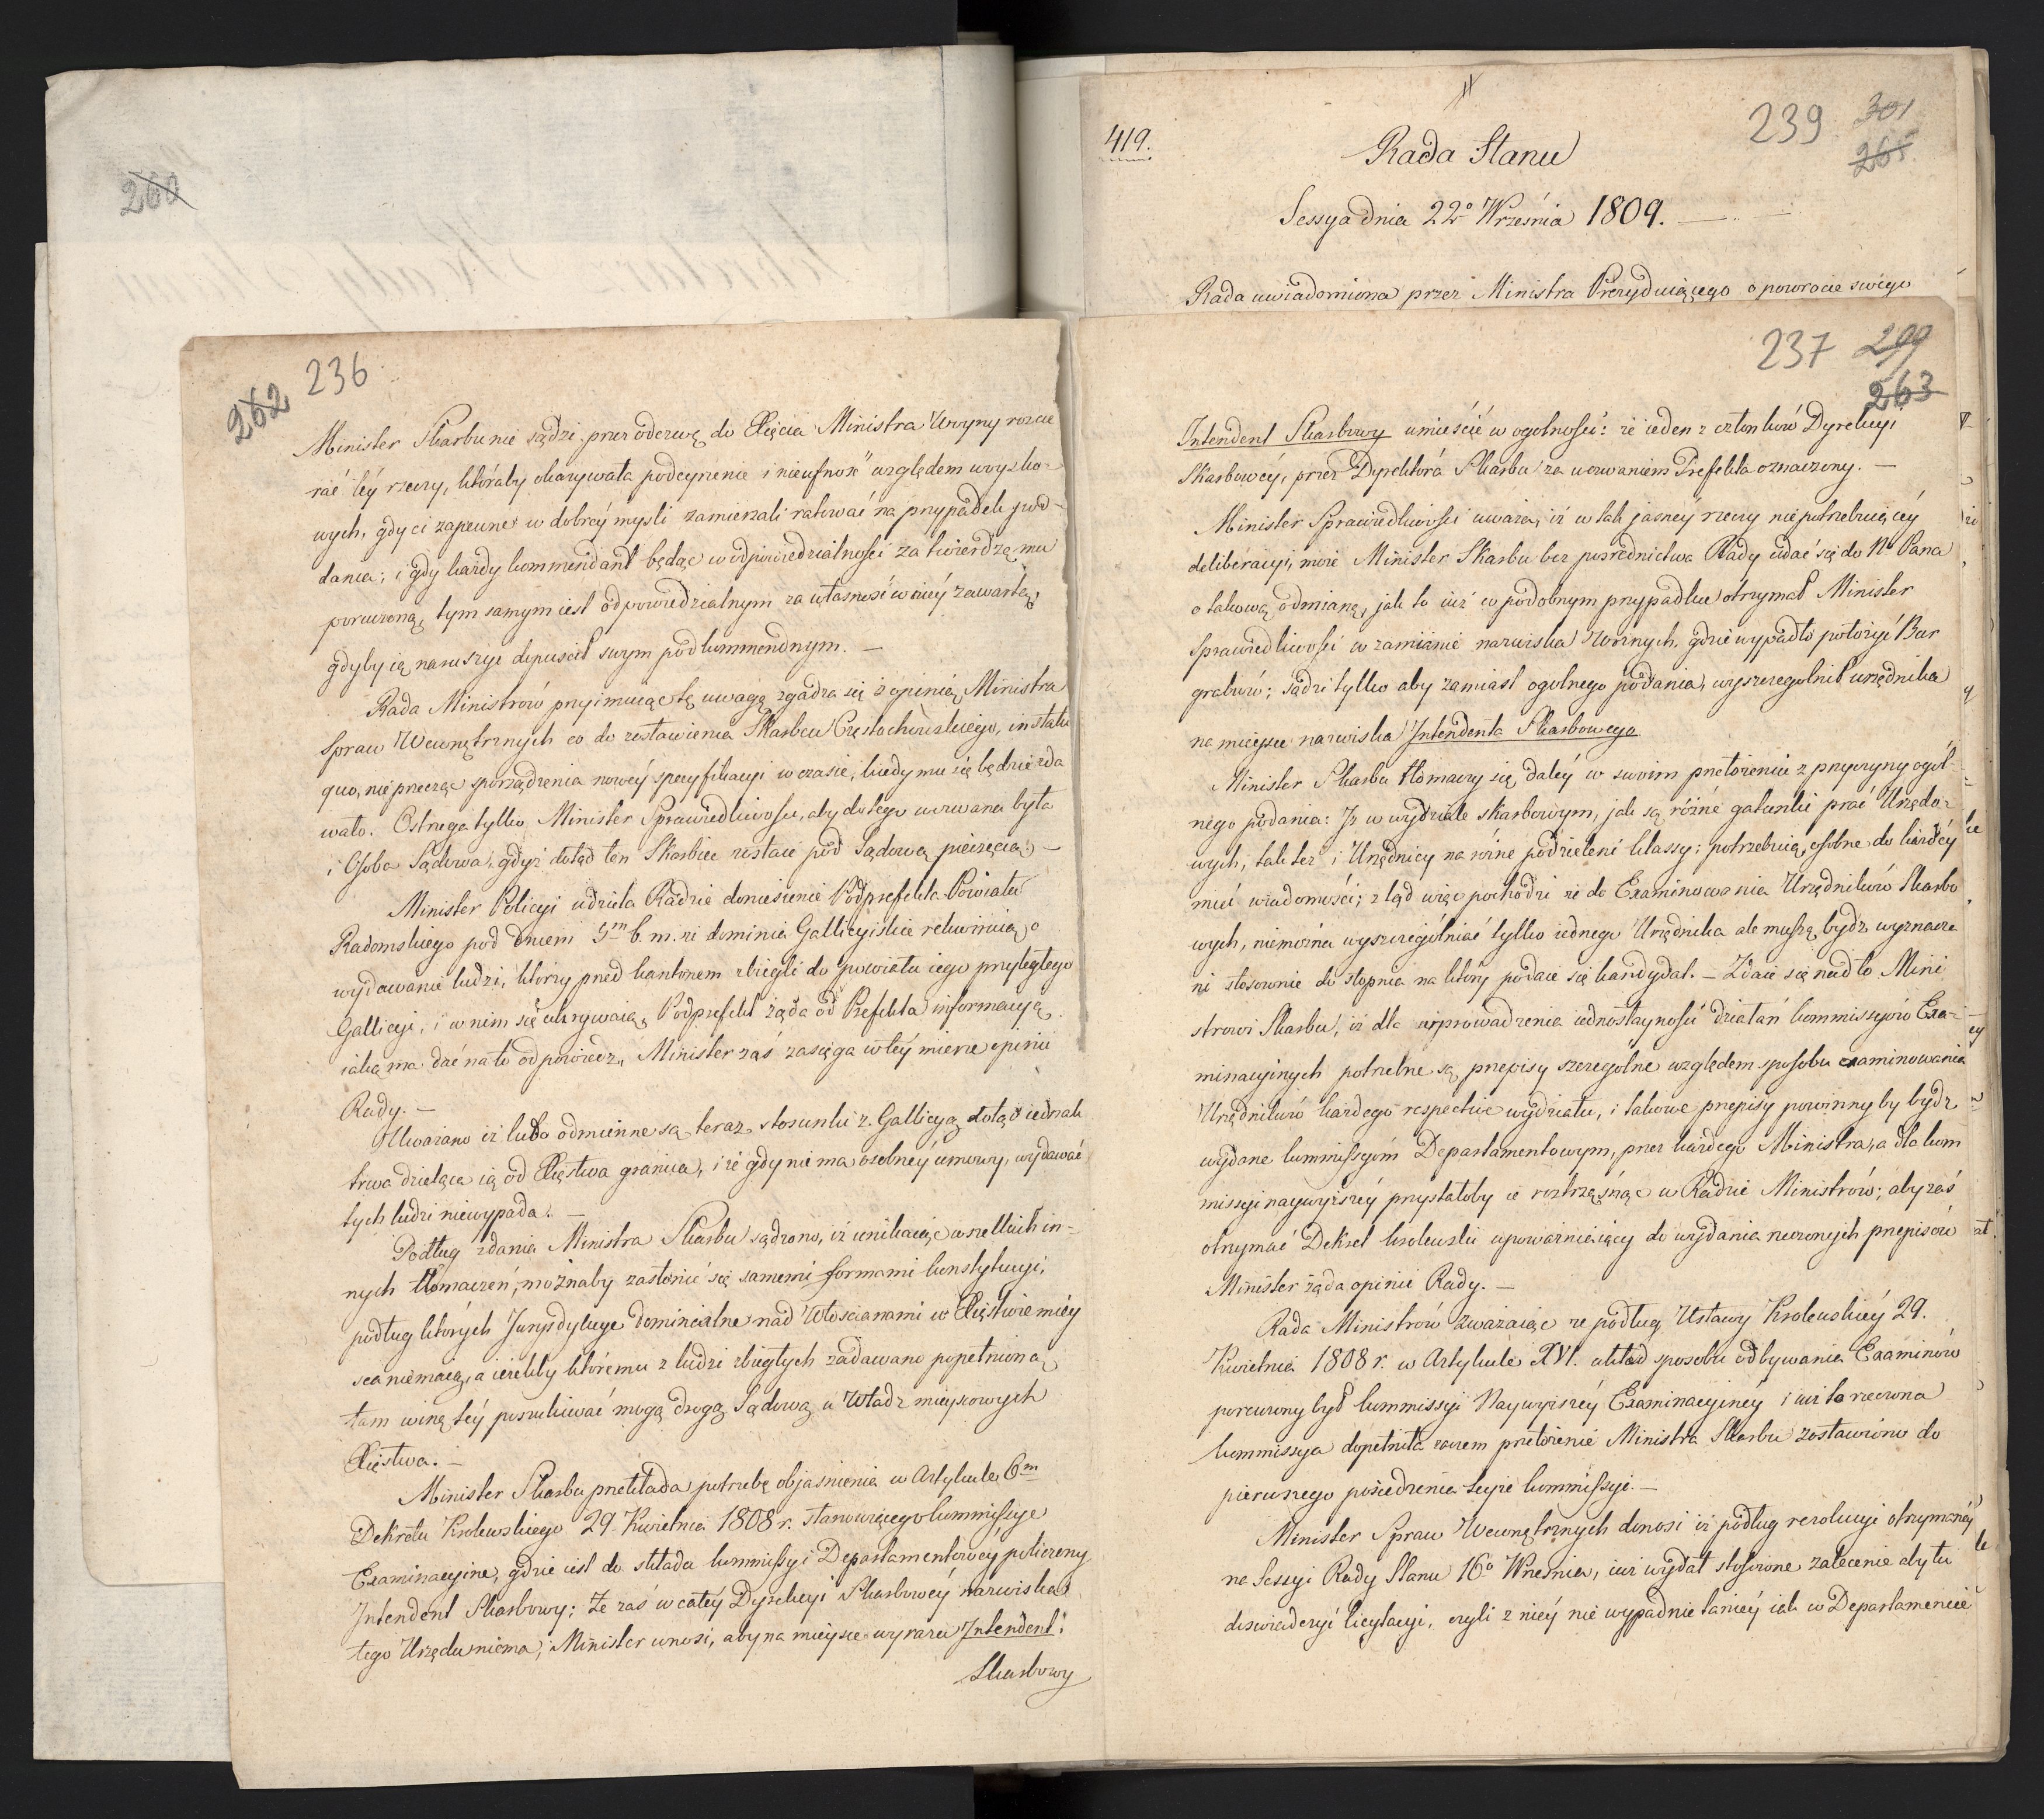 260
419.
239 301
265
Rada Stanu
Sessya dnia 22º Września 1809. —
Rada uwiadomiona przez Ministra Prezyduiącego o powrocie swégo
262 236
Minister Skarbu nie sądzi przez odezwę do Xięcia Ministra Woyny rozcie
rać téy rzeczy, któraby okazywała podeyrzenie i nieufność względem woysko-
wych, gdy ci zapewne w dobréy mysli zamierzali ratować na przypadek pod-
dania; i gdy każdy kommendant będąc w odpowiedzialności za twierdzę mu
poruczoną, tym samym iest odpowiedzialnym za własność w niéy zawartą,
gdyby ią naruszyć dopuścił swym podkommendnym. —
Rada Ministrów przyimuiąc tę uwagę zgadza się z opinią Ministra
Spraw Wewnętrznych co do zostawienia Skarbcu Częstochowskiego, in statu
quo, nie przecząc sporządzenia nowéy specyfikacyi w czasie, kiedy mu się będzie zda
wało. Ostrzega tylko Minister Sprawiedliwości, aby do tego wezwana była
i Osoba Sądowa, gdyż dotąd ten Skarbiec zostaie pod Sądową pieczęcią; —
Minister Policyi udziela Radzie doniesienie Podprefekta Powiatu
Radomskiego pod dniem 5m b. m. że dominia Gallicyiskie rekwiruią o
wydawanie ludzi, którzy przed kantonem zbiegli do powiatu iego przyległego
Gallicyi, i w nim się ukrywaią, Podprefekt żąda od Prefekta informacyą,
iaką ma dać na to odpowiedz, Minister zaś zasięga w téy mierze opinii
Rady. —
Uważano iż lubo odmienne są teraz stosunki z Gallicyą, dotąd iednak
trwa dzieląca ią od Xięstwa granica, i że gdy nie ma osobnéy umowy, wydawać
tych ludzi niewypada. —
Podług zdania Ministra Skarbu sądzono, iż unikaiąc wszelkich in-
nych tłomaczeń, możnaby zasłonić się samemi formami konstytucyi,
podług których Jurysdykcye dominialne nad Włościanami w Xięstwie miéy
sca niemaią, a ieżeliby któremu z ludzi zbiegłych zadawano popełnioną
tam winę, téy poszukiwać mogą drogą Sądową u Władz mieyscowych
Xięstwa. —
Minister Skarbu przekłada potrzebę objaśnienia w Artykule 6m
Dekretu Krolewskiego 29 Kwietnia 1808 r. stanowiącego kommissye
Examinacyine, gdzie iest do składu kommissyi Departamentowey policzony
Intendent Skarbowy; Że zaś w całéy Dyrekcyi Skarbowéy nazwiska
tego Urzędu niema, Minister wnosi, aby na mieysce wyrazu Intendent
Skarbowy
237 299
263
Intendent Skarbowy umieścić w ogolności: że ieden z członków Dyrekcyi
Skarbowéy, przez Dyrektora Skarbu za wezwaniem Prefekta oznaczony. —
Minister Sprawiedliwości uważa, iż w tak jasnéy rzeczy nie potrzebuiącéy
deliberacyi, może Minister Skarbu bez pośrednictwa Rady udać się do Nº Pana
o takową odmianę, jak to iuż w podobnym przypadku otrzymał Minister
Sprawiedliwości w zamianie nazwiska Woźnych, gdzie wypadło położyć Bur
grabiów; Sądzi tylko aby zamiast ogolnego podania, wyszczególnił urzędnika
na mieysce nazwiska Intendenta Skarbowego
Minister Skarbu tłomaczy się daléy w swoim przełożeniu z przyczyny ogól-
nego podania: Iż w wydziale skarbowym, jak są różné gatunki prać Urzędo-
wych, tak też i Urzędnicy na różne podzieleni klassy; potrzebuią osobne do każdéy
mieć wiadomości; ztąd więc pochodzi że do Examinowania Urzędników Skarbo
wych, niemożna wyszczególniać tylko iednego Urzędnika ale muszą bydź wyznacze
ni stosownie do stopnia na który podaie się kandydat. — Zdaie się nadto Mini
strowi Skarbu, iż dla uprowadzenia iednostayności działań kommissyów Exa-
minacyinych potrzebne są przepisy szczegolne względem sposobu examinowania
Urzędników każdego respective wydziału, i takowe przepisy powinnyby bydź
wydane kommissyóm Departamentowym, przez każdego Ministra, a dla kom
missyi naywyższéy przystałoby ie roztrząsnąć w Radzie Ministrów; aby zaś
otrzymać Dekret krolewski upoważniaiący do wydania rzeczonych przepisów
Minister żąda opinii Rady. —
Rada Ministrów zważaiąc że podług Ustawy Krolewskiéy 29.
Kwietnia 1808 r. w Artykule XVI. układ sposobu odbywania Examinów
poruczony był kommissyi Naywyższéy Examinacyinéy i iuż ta rzeczona
kommissya dopełniła zaczem przełożenie Ministra Skarbu zostawiono do
pierwszego posiedzenia teyże kommissyi. —
Minister Spraw Wewnętrznych donosi iż podług rezolucyi otrzymanéy
na Sessyi Rady Stanu 16º Września, iuż wydał stosowne zalecenie aby tu
doświadczyć licytacyi, czyli z niéy nie wypadnie taniéy iak w Departamencie